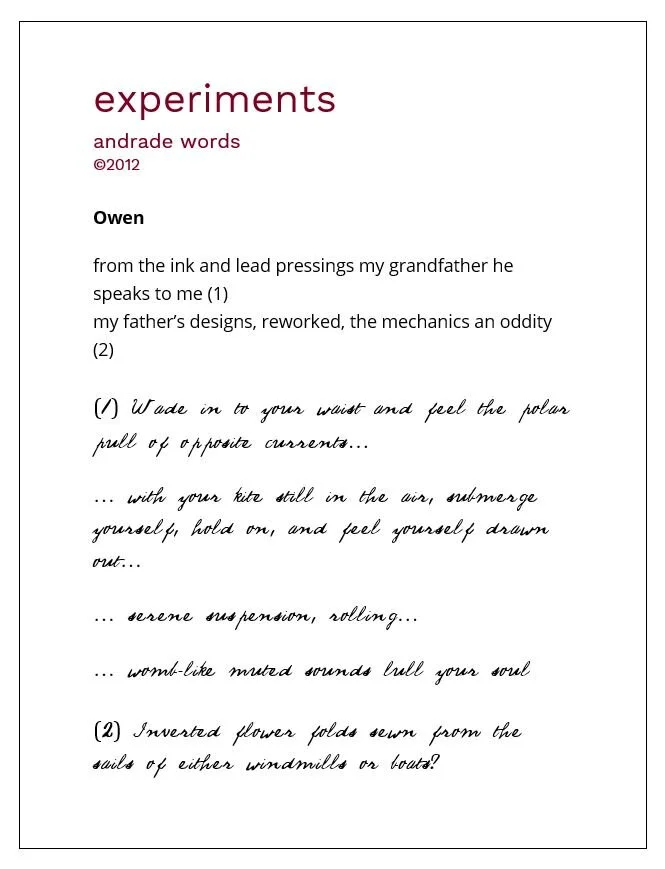 experiments
andrade words
©2012
Owen
from the ink and lead pressings my grandfather he
speaks to me (1)
my father’s designs, reworked, the mechanics an oddity
(2)
(1) Wade in to your waist and feel the polar
pull of opposite currents...
... with your kite still in the air, submerge
yourself, hold on, and feel yourself drawn
out...
... serene suspension, rolling...
... womb-like muted sounds lull your soul
(2) Inverted flower folds sewn from the
sails of either windmills or boats?